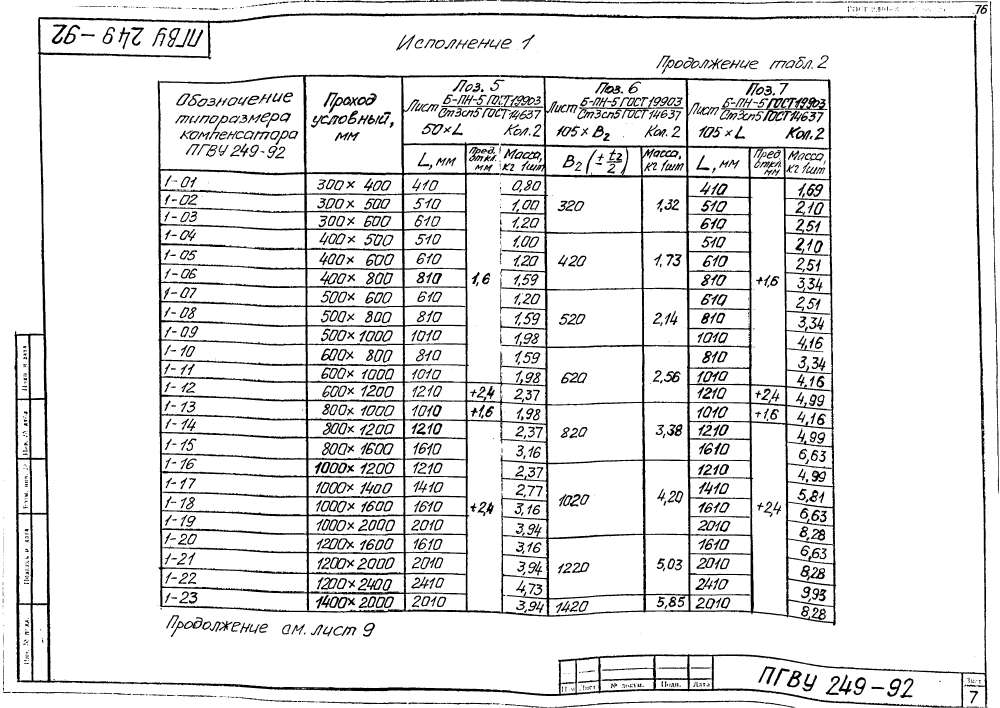 76
ПГВУ 249-92
Исполнение 1
Продолжение табл. 2
Обозначение типоразмера компенсатора ПГВУ 249-92
Проход условный, мм
Поз. 5
Лист Б-ПН-5 ГОСТ 19903 / Ст3сп5 ГОСТ 14637
50×L Кол. 2
Поз. 6
Лист Б-ПН-5 ГОСТ 19903 / Ст3сп5 ГОСТ 14637
105×B2 Кол. 2
Поз. 7
Лист Б-ПН-5 ГОСТ 19903 / Ст3сп5 ГОСТ 14637
105×L Кол. 2
L, мм Пред. откл. мм Масса, кг 1шт B2 (± t2/2) Масса, кг 1шт L, мм Пред. откл. мм Масса, кг 1шт
1-01 300×400 410 0,80 410 1,69
1-02 300×500 510 1,00 320 1,32 510 2,10
1-03 300×600 610 1,20 610 2,51
1-04 400×500 510 1,00 510 2,10
1-05 400×600 610 1,20 420 1,73 610 2,51
1-06 400×800 810 1,6 1,59 810 +1,6 3,34
1-07 500×600 610 1,20 610 2,51
1-08 500×800 810 1,59 520 2,14 810 3,34
1-09 500×1000 1010 1,98 1010 4,16
1-10 600×800 810 1,59 810 3,34
1-11 600×1000 1010 1,98 620 2,56 1010 4,16
1-12 600×1200 1210 +2,4 2,37 1210 +2,4 4,99
1-13 800×1000 1010 +1,6 1,98 1010 +1,6 4,16
1-14 800×1200 1210 2,37 820 3,38 1210 4,99
1-15 800×1600 1610 3,16 1610 6,63
1-16 1000×1200 1210 2,37 1210 4,99
1-17 1000×1400 1410 2,77 1020 4,20 1410 5,81
1-18 1000×1600 1610 +2,4 3,16 1610 +2,4 6,63
1-19 1000×2000 2010 3,94 2010 8,28
1-20 1200×1600 1610 3,16 1610 6,63
1-21 1200×2000 2010 3,94 1220 5,03 2010 8,28
1-22 1200×2400 2410 4,73 2410 9,93
1-23 1400×2000 2010 3,94 1420 5,85 2010 8,28
Продолжение см. лист 9
Изм Лист № докум. Подп. Дата
ПГВУ 249-92
Лист
7